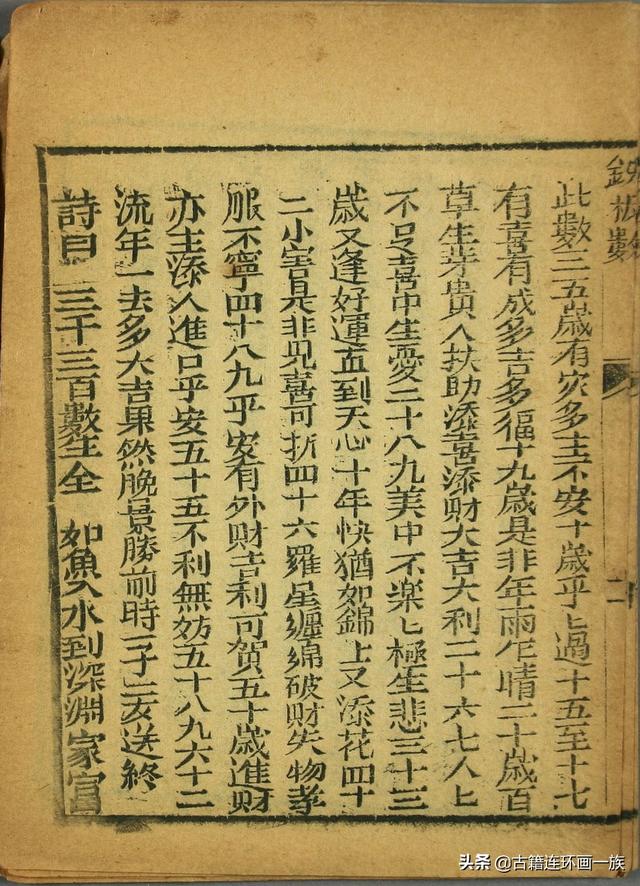 鉄板數
此數三五歳有灾多主不安十歳乎匕過十五至十七
有喜有成多吉多福十九歳是非年雨乍晴二十歳百
草生芽貴人扶助添喜添財大吉大利二十六七人上
不足喜中生憂二十八九美中不楽匕極生悲三十三
歳又逢好運直到天心十年快猶如錦上又添花四十
二小害是非见喜可折四十六羅星纏綿破財失物孝
服不寧四十八九乎安有外財吉利可賀五十歳進財
亦主添人進口乎安五十五不利無妨五十八九六十二
流年一去多大吉果然晩景勝前時一子二亥送終
詩曰 三千三百數生全 如魚入水到深淵家官
头条 @古籍连环画一族